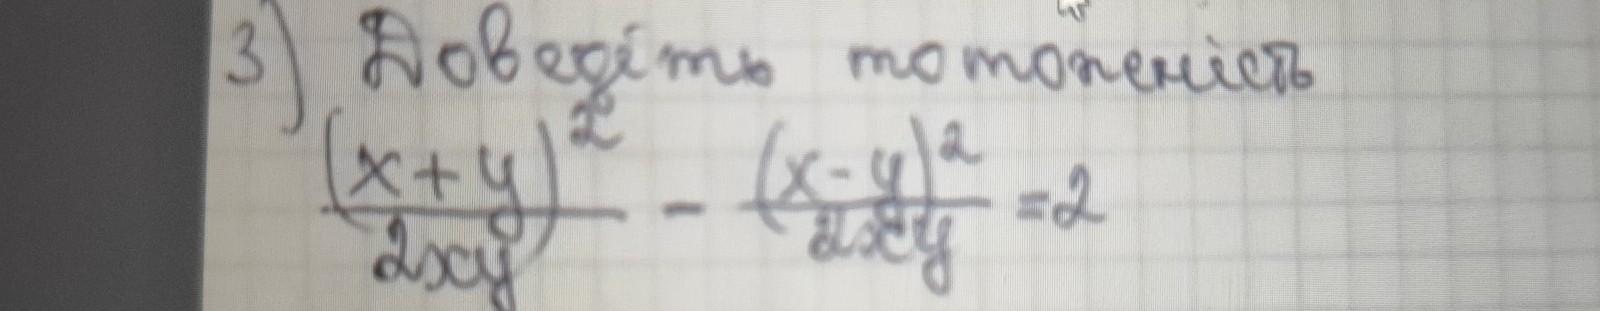 3) Доведіть тотожність
(x+y)²/2xy - (x-y)²/2xy = 2